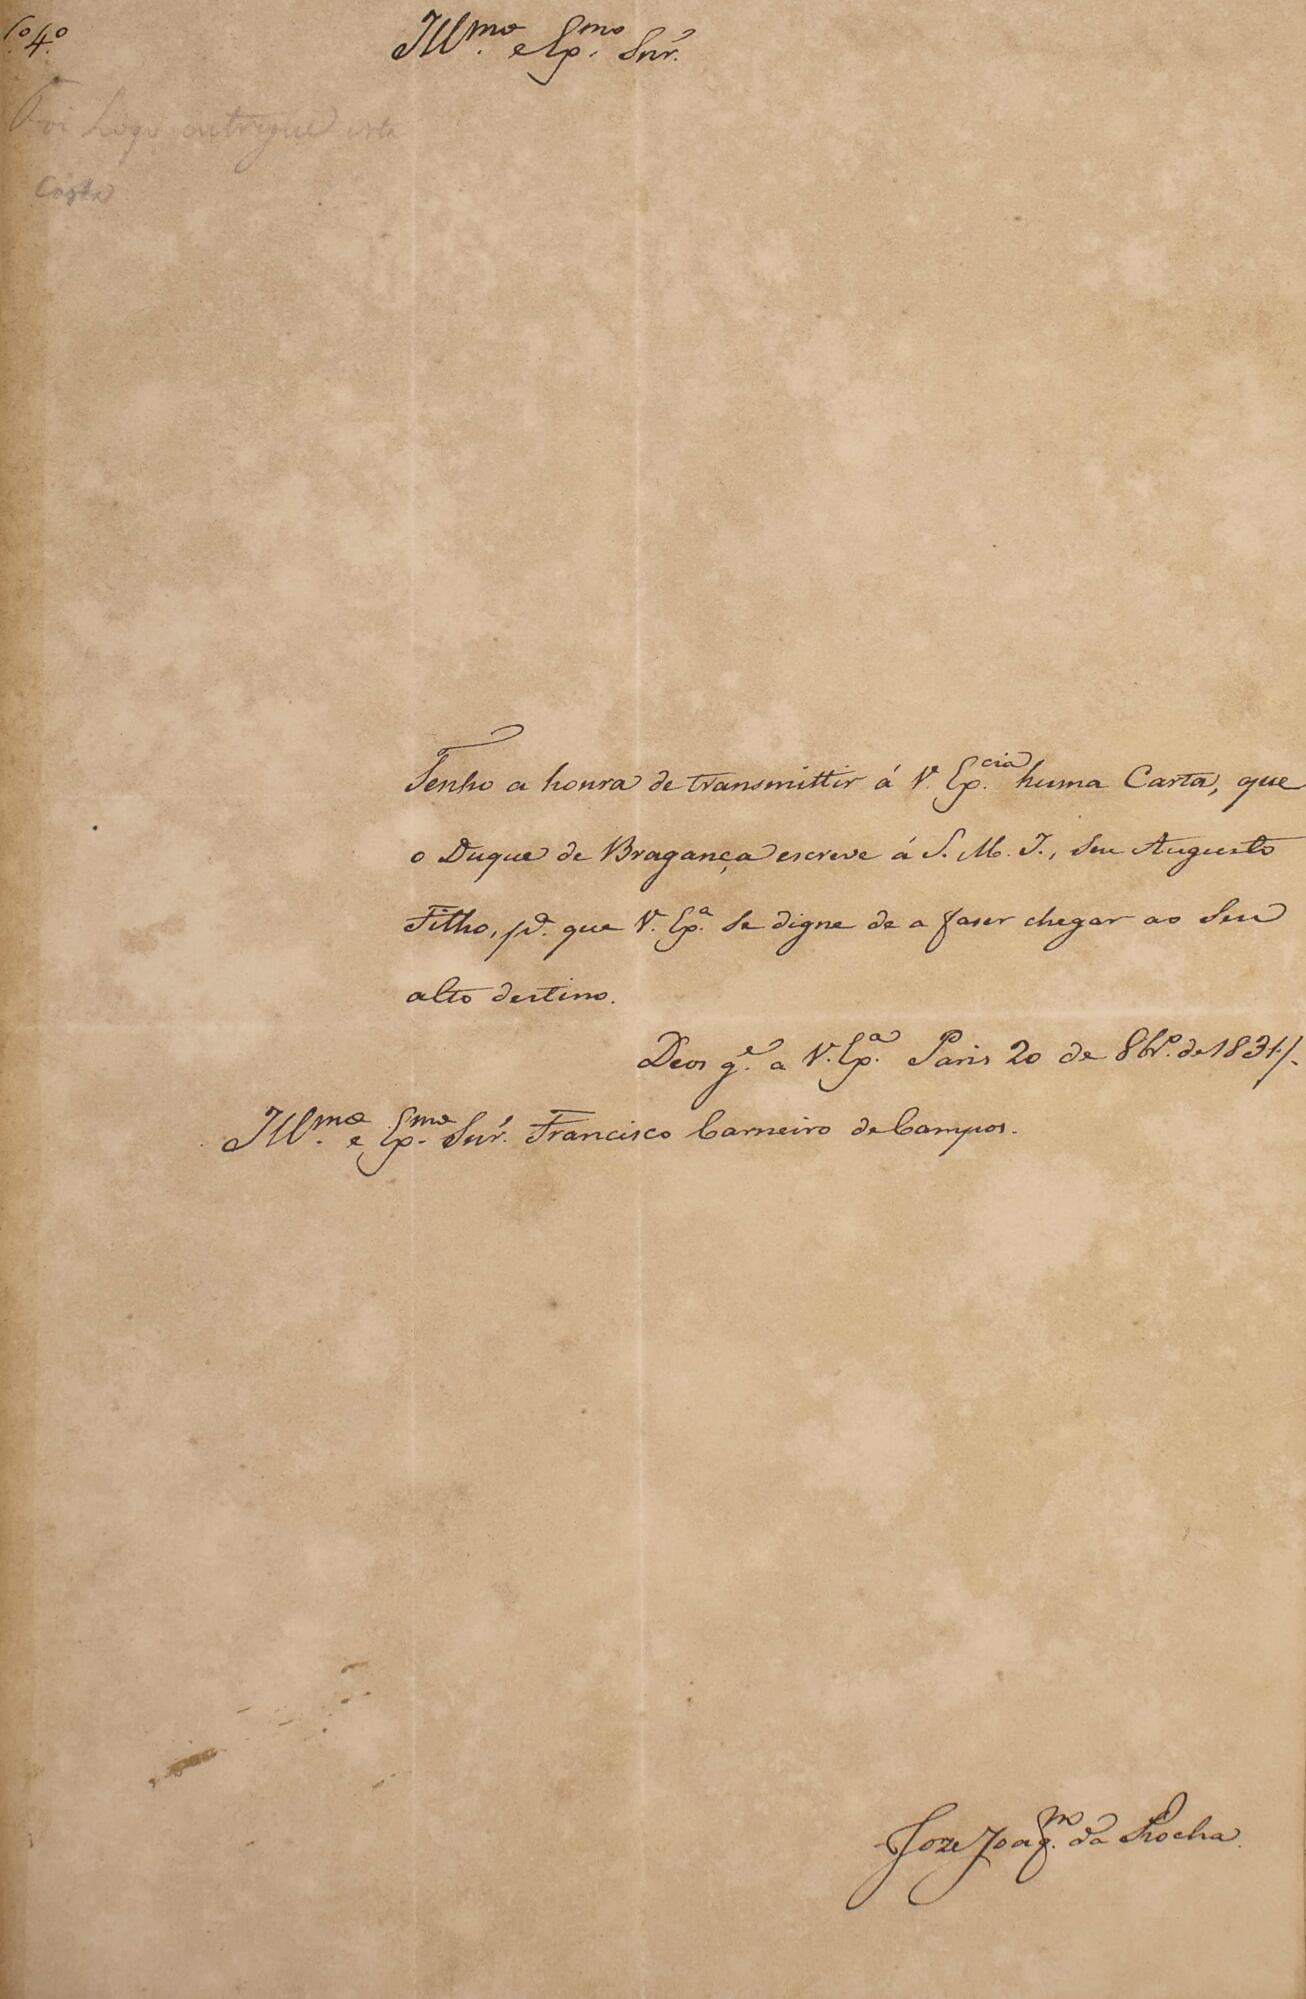 Nº 4º
Illmo. e Exmo. Snr.
Foi Logo entregue esta
Carta
Tenho a honra de transmittir á V. Excia. huma Carta, que
o Duque de Bragança escreve á S. M. I., Seu Augusto
Filho, pa. que V. Exa. Se digne de a faser chegar ao Seu
alto destino.
Deos ge. a V. Exa. Paris 20 de 8bro. de 1831/.
Illmo. e Exmo. Snr. Francisco Carneiro de Campos.
Joze Joaqm. da Rocha.